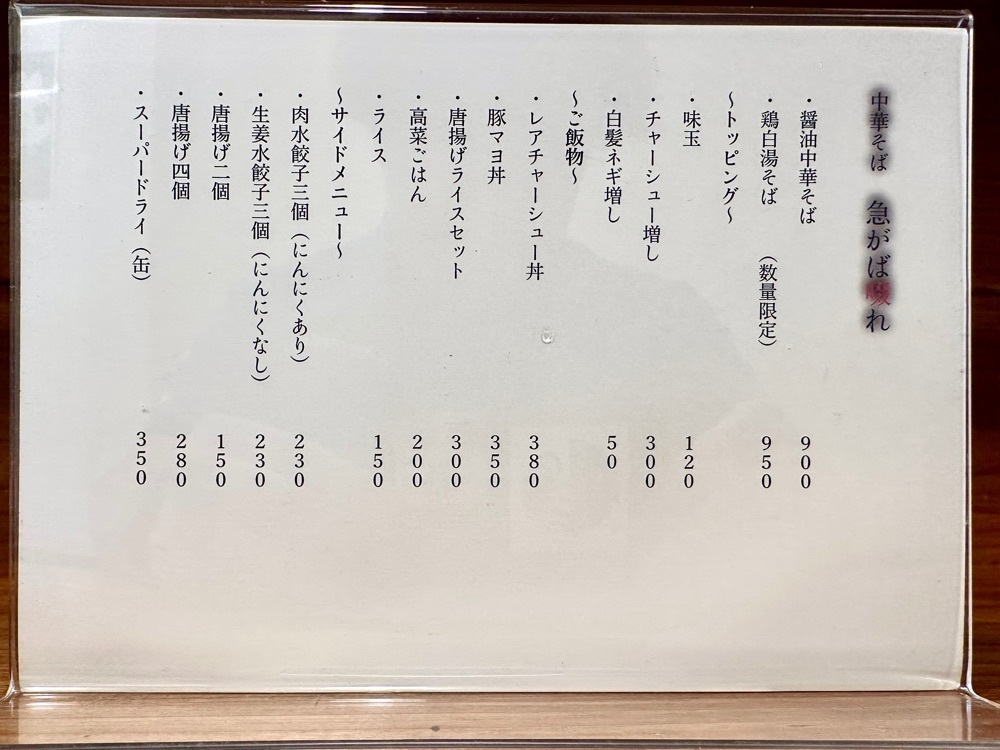 中華そば 急がば啜れ
・醤油中華そば 900
・鶏白湯そば (数量限定) 950
〜トッピング〜
・味玉 120
・チャーシュー増し 300
・白髪ネギ増し 50
〜ご飯物〜
・レアチャーシュー丼 380
・豚マヨ丼 350
・唐揚げライスセット 300
・高菜ごはん 200
・ライス 150
〜サイドメニュー〜
・肉水餃子三個(にんにくあり) 230
・生姜水餃子三個(にんにくなし) 230
・唐揚げ二個 150
・唐揚げ四個 280
・スーパードライ(缶) 350